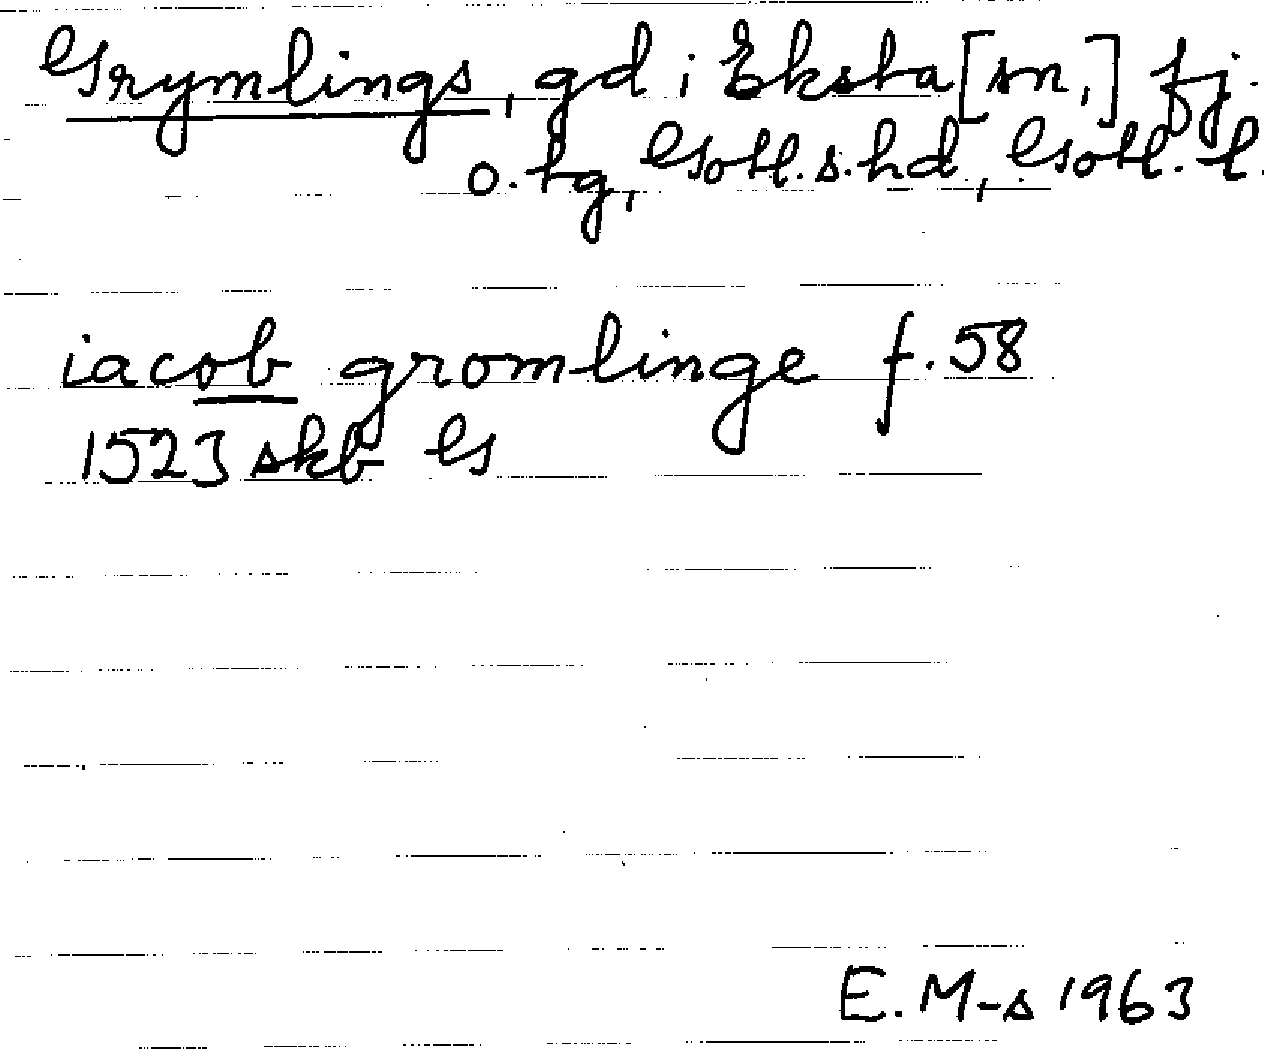 Grymlings, gd i Eksta [sn,] fj.
o. tg, Gotl. s. hd, Gotl. l.
iacob gromlinge f. 58
1523 skb G
E. M-s 1963